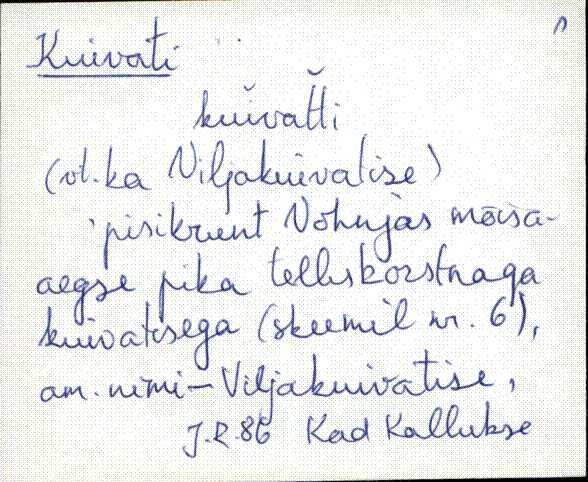 Kuivati
kŭivatt̆i
(vt.ka Viljakuivatise)
'pisikrunt Võhnjas mõisa-
aegse pika telliskorstnaga
kuivatisega (skeemil nr. 6),
am. nimi – Viljakuivatise,
J.R.86 Kad Kallukse